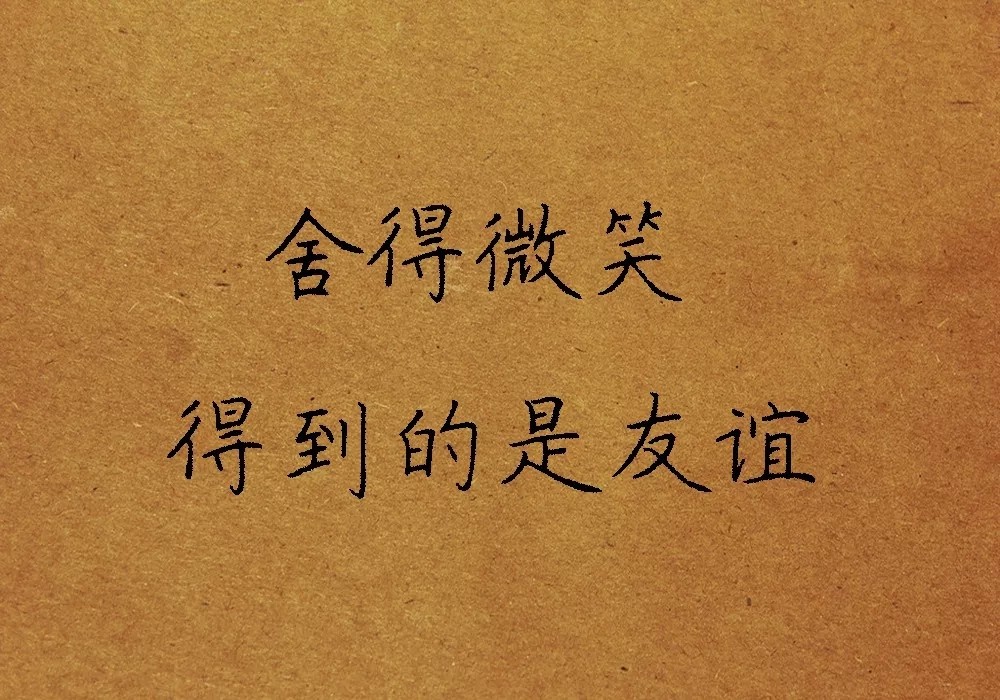 舍得微笑
得到的是友谊